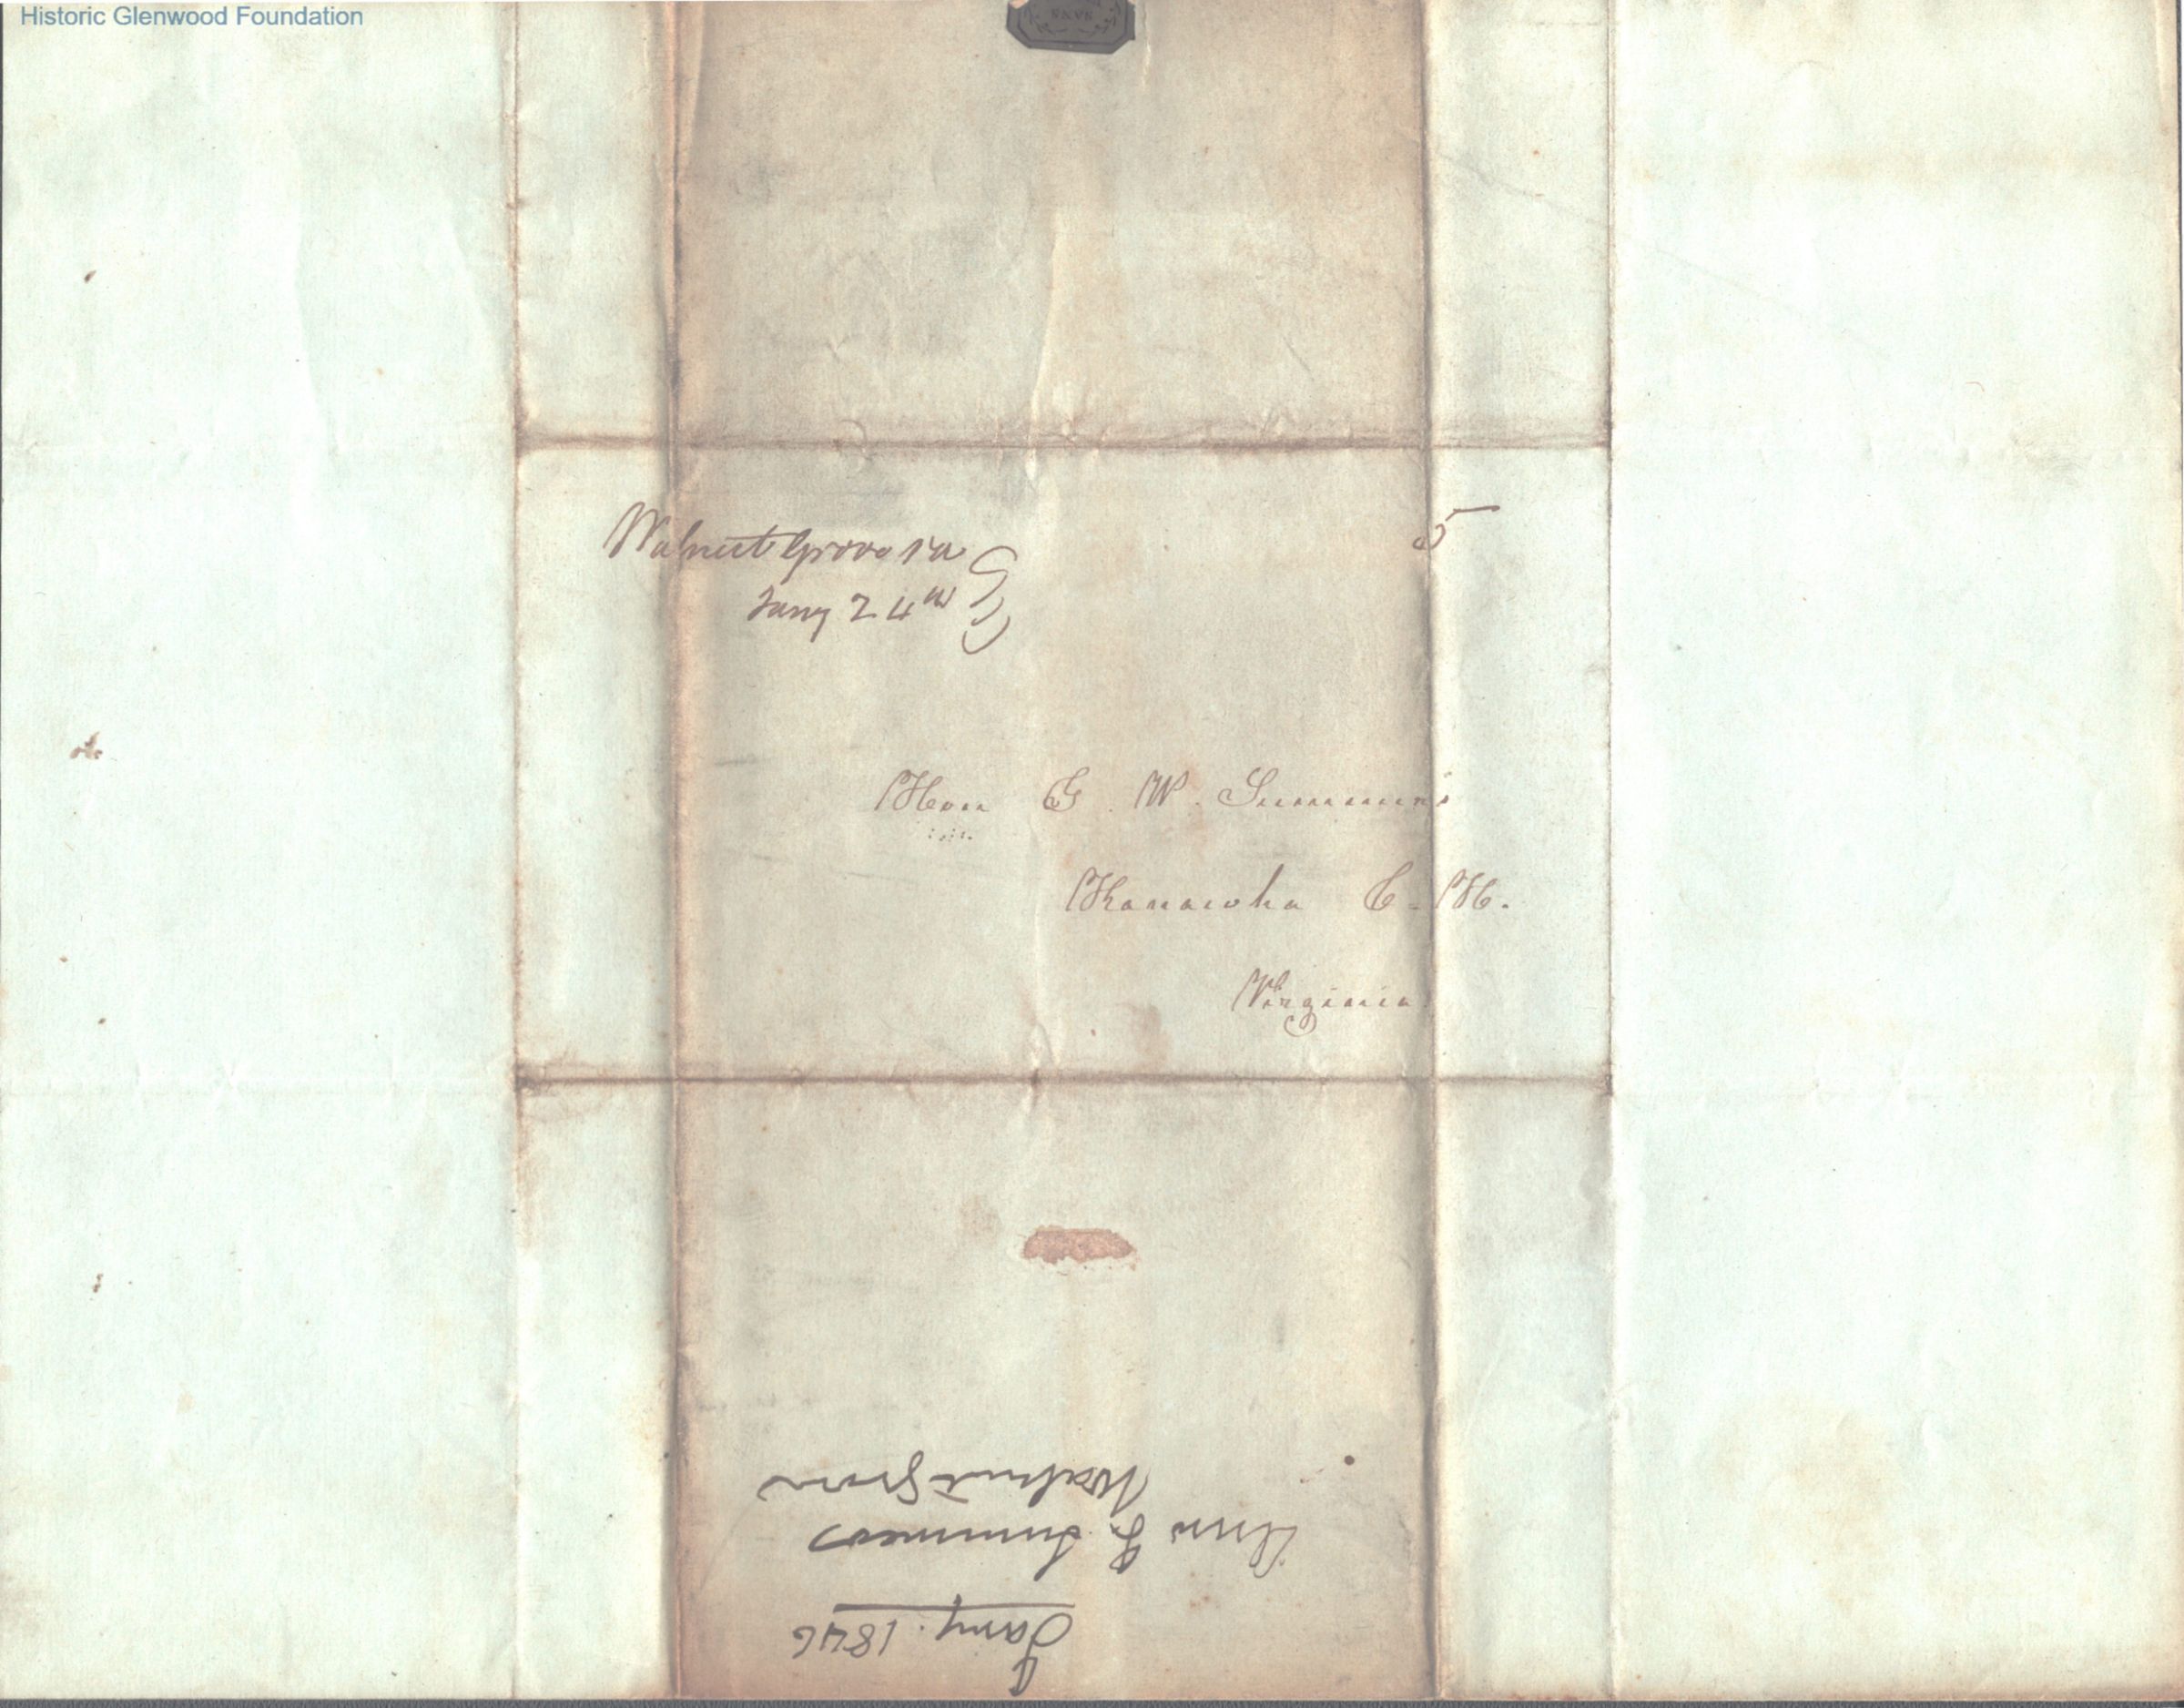 Historic Glenwood Foundation
Walnut Grove Va
Jany 24th
5
Hon G. W. Summers
Kanawha C. H.
Virginia
Jany. 1846
Ann F. Summers
Walnut Grove